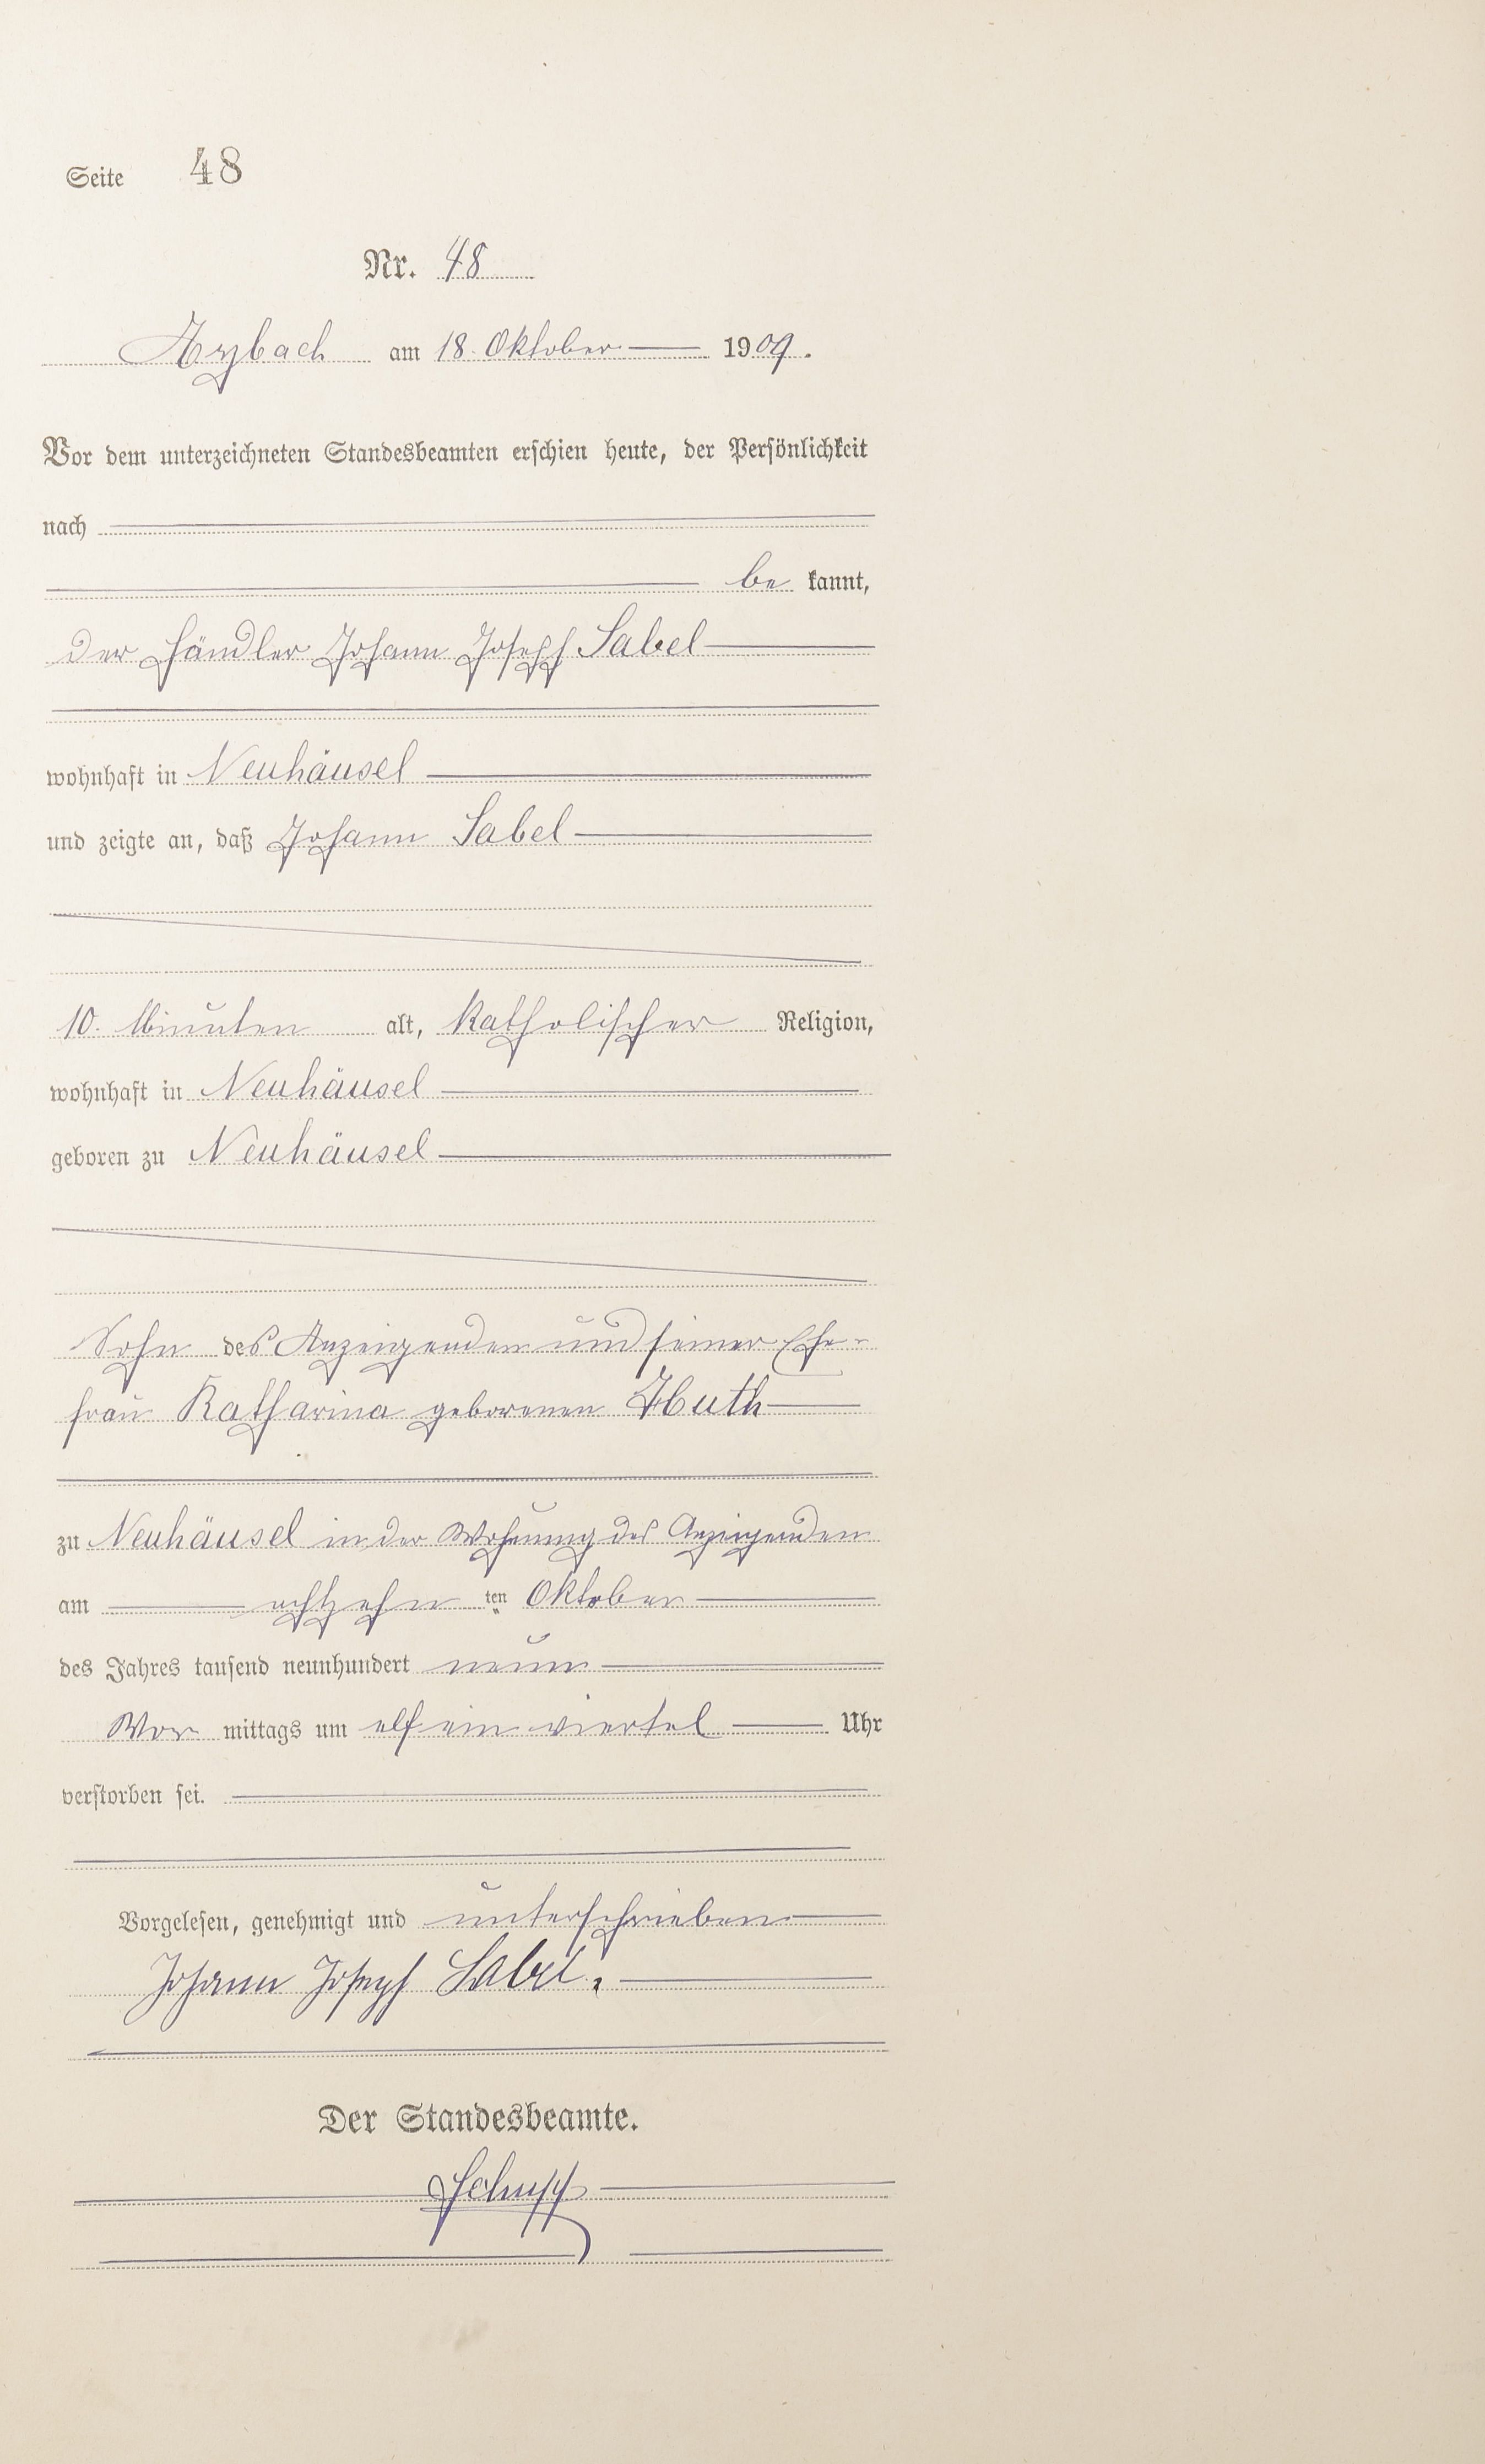 Seite 48
Nr. 48
Arzbach am 18. Oktober 1909.
Vor dem unterzeichneten Standesbeamten erschien heute, der Persönlichkeit
nach
be kannt,
der Händler Johann Joseph Sabel
wohnhaft in Neuhäusel
und zeigte an, daß Johann Sabel
10. Minuten alt, katholischer Religion,
wohnhaft in Neuhäusel
geboren zu Neuhäusel
Sohn des Anzeigenden und seiner Ehe-
frau Katharina geborenen Huth
zu Neuhäusel in der Wohnung des Anzeigenden
am achtzehn ten Oktober
des Jahres tausend neunhundert neun
Vor mittags um elf ein viertel Uhr
verstorben sei.
Vorgelesen, genehmigt und unterschrieben
Johann Joseph Sabel.
Der Standesbeamte.
Schupp